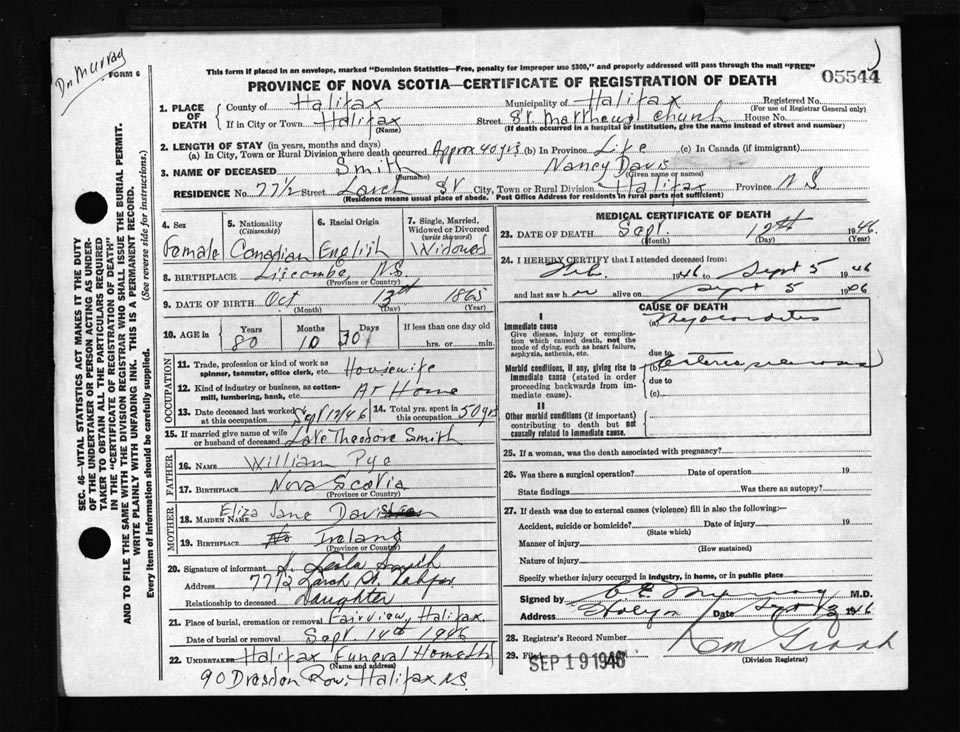 Dr Murray
FORM 6
This form if placed in an envelope, marked "Dominion Statistics—Free, penalty for improper use $300," and properly addressed will pass through the mail "FREE"
PROVINCE OF NOVA SCOTIA—CERTIFICATE OF REGISTRATION OF DEATH
05544
1. PLACE OF DEATH { County of Halifax Municipality of Halifax Registered No.
(For use of Registrar General only)
If in City or Town Halifax Street St. Matthews Church House No.
(Name) (If death occurred in a hospital or institution, give the name instead of street and number)
2. LENGTH OF STAY (in years, months and days)
(a) In City, Town or Rural Division where death occurred Approx 40 yrs (b) In Province Life (c) In Canada (if immigrant)
3. NAME OF DECEASED Smith Nancy Davis
(Surname) (Given name or names)
RESIDENCE No. 77 1/2 Street Larch St City, Town or Rural Division Halifax Province NS
(Residence means usual place of abode. Post Office Address for residents in rural parts not sufficient)
4. Sex 5. Nationality (Citizenship) 6. Racial Origin 7. Single, Married, Widowed or Divorced (write the word)
Female Canadian English Widowed
8. BIRTHPLACE Liscombe, N.S.
(Province or Country)
9. DATE OF BIRTH Oct 13th 1865
(Month) (Day) (Year)
10. AGE in { Years Months Days If less than one day old
80 10 30 hrs. or min.
OCCUPATION
11. Trade, profession or kind of work as spinner, teamster, office clerk, etc. Housewife
12. Kind of industry or business, as cotton-mill, lumbering, bank, etc. At Home
13. Date deceased last worked at this occupation Sept 12/46 14. Total yrs. spent in this occupation 50 yrs
15. If married give name of wife or husband of deceased Late Theodore Smith
FATHER
16. NAME William Pye
17. BIRTHPLACE Nova Scotia
(Province or Country)
MOTHER
18. MAIDEN NAME Eliza Jane Davis
19. BIRTHPLACE Ireland
(Province or Country)
20. Signature of informant Leila Smith
Address 77 1/2 Larch St. Halifax
Relationship to deceased Daughter
21. Place of burial, cremation or removal Fairview, Halifax
Date of burial or removal Sept. 14th 1946
22. UNDERTAKER Halifax Funeral Home Ltd
(Name and address)
90 Dresden Row, Halifax NS
MEDICAL CERTIFICATE OF DEATH
23. DATE OF DEATH Sept. 12th 1946.
(Month) (Day) (Year)
24. I HEREBY CERTIFY that I attended deceased from:
Feb. 1946 to Sept 5 1946
and last saw her alive on Sept 5 1946
CAUSE OF DEATH
I
Immediate cause (a) Myocarditis
Give disease, injury or complication which caused death, not the mode of dying, such as heart failure, asphyxia, asthenia, etc.
due to
Morbid conditions, if any, giving rise to immediate cause (stated in order proceeding backwards from immediate cause). (b)
due to
(c)
II
Other morbid conditions (if important) contributing to death but not causally related to immediate cause.
25. If a woman, was the death associated with pregnancy?
26. Was there a surgical operation? Date of operation 19
State findings Was there an autopsy?
27. If death was due to external causes (violence) fill in also the following:
Accident, suicide or homicide? Date of injury 19
(State which)
Manner of injury
(How sustained)
Nature of injury
Specify whether injury occurred in industry, in home, or in public place
Signed by Murray M.D.
Address Halifax Date Sept 13 1946
28. Registrar's Record Number
29. Filed SEP 19 1946
(Division Registrar)
SEC. 46—VITAL STATISTICS ACT MAKES IT THE DUTY OF THE UNDERTAKER OR PERSON ACTING AS UNDERTAKER TO OBTAIN ALL THE PARTICULARS REQUIRED IN THE "CERTIFICATE OF REGISTRATION OF DEATH" AND TO FILE THE SAME WITH THE DIVISION REGISTRAR WHO SHALL ISSUE THE BURIAL PERMIT.
WRITE PLAINLY WITH UNFADING INK. THIS IS A PERMANENT RECORD.
Every item of information should be carefully supplied. (See reverse side for instructions.)